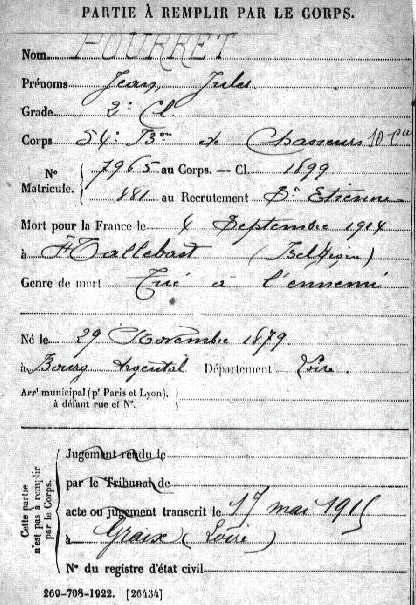 PARTIE À REMPLIR PAR LE CORPS.
Nom FOURRET
Prénoms Jean, Jules
Grade 2e Cl
Corps 54e Bon de Chasseurs
No Matricule. 7965 au Corps. — Cl. 1899
881 au Recrutement St Etienne
Mort pour la France le 4 Septembre 1914
à Hallebast (Belgique)
Genre de mort Tué à l'ennemi
Né le 29 Novembre 1879
à Bourg Argental Département Loire.
Arrt municipal (pr Paris et Lyon), à défaut rue et No.
Cette partie n'est pas à remplir par le Corps.
Jugement rendu le
par le Tribunal de
acte ou jugement transcrit le 17 mai 1915
à Graix (Loire)
No du registre d'état civil
269-708-1922. [26434]